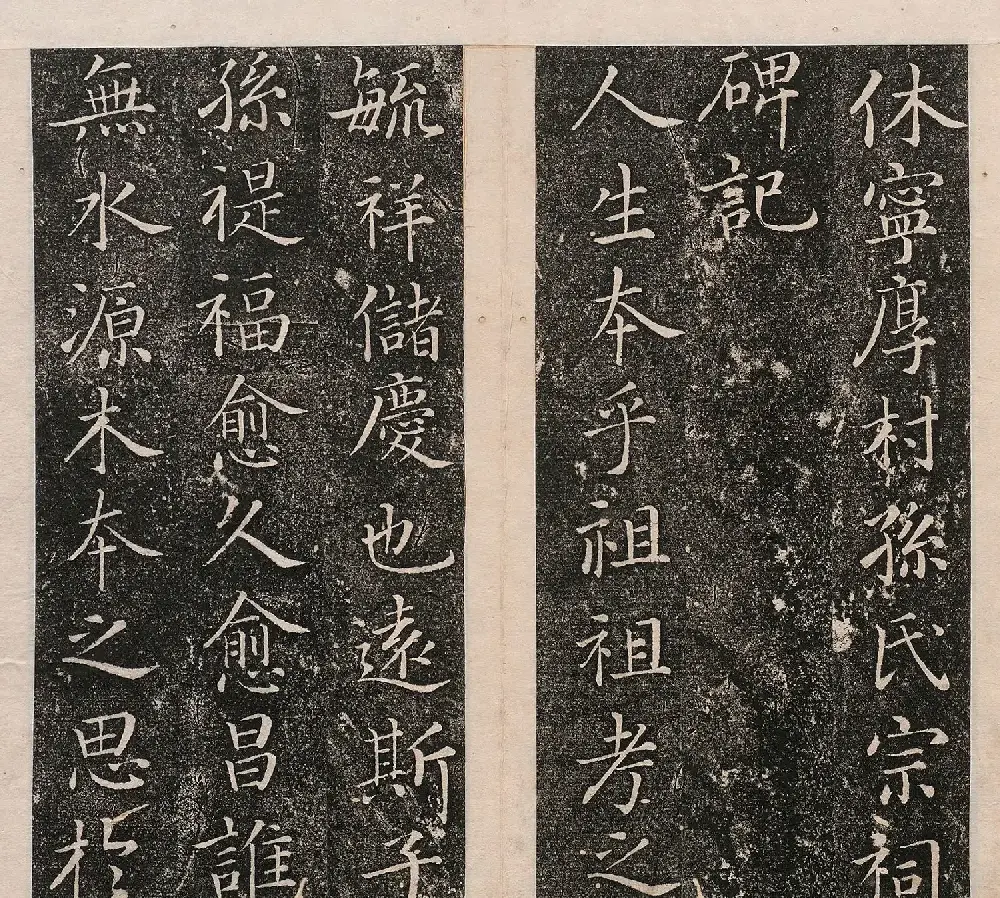 休寧厚村孫氏宗祠
碑記
人生本乎祖祖考之
毓祥儲慶也遠斯子
孫禔福愈久愈昌誰
無水源木本之思於